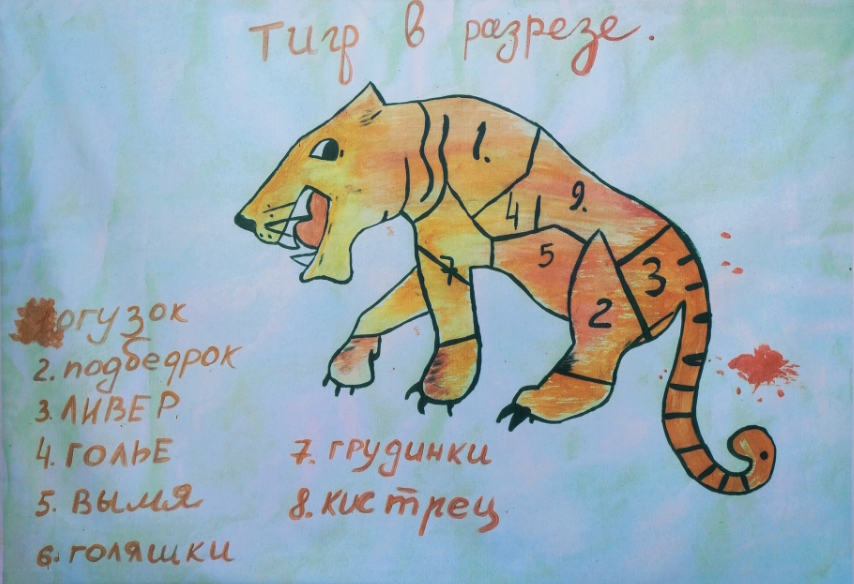 Тигр в разрезе.
1.
4
9.
5
7
3
2
огузок
2. подбедрок
3. ЛИВЕР
4. ГОЛЬЕ
5. ВЫМЯ
6. ГОЛЯШКИ
7. ГРУДИНКИ
8. КИСТРЕЦ